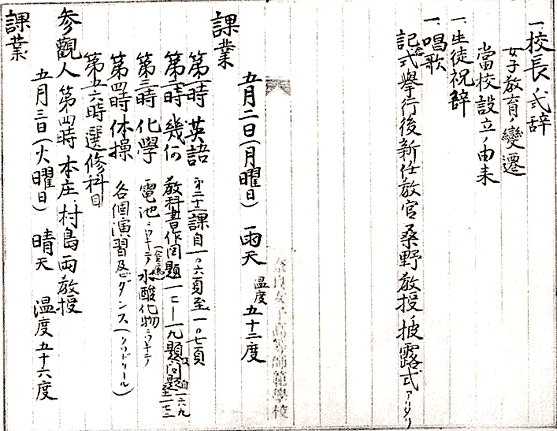 一、校長ノ式辞
女子教育ノ變遷
當校設立ノ由来
一、生徒祝辞
一、唱歌
記式挙行後新任教官桑野教授披露式アリタリ
五月二日(月曜日) 雨天 温度 五十二度
課業
第一時 英語 第三十一課自一〇六頁至一〇七頁
第二時 幾何 教科書作問題
第三時 化學 電池ニツキテ 水酸化物ニツキテ
第四時 体操 各個演習及ダンス
第五六時 選修科目
参觀人 第四時 本庄、村島両教授
五月三日(火曜日) 晴天 温度五十六度
課業
奈良女子高等師範學校